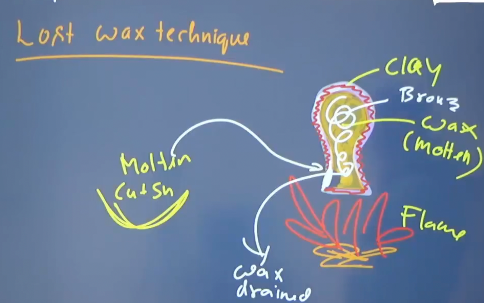 Lost wax technique
Clay
Bronz
wax
(molten)
Moltin
Cu+Sn
Flame
wax
drained